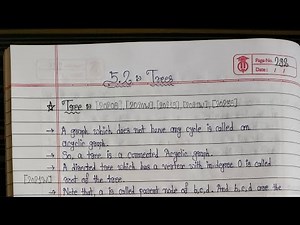 Page No. 292
Date: / /
5.2 :- Trees
☆ Tree :-
→ A graph which does not have any cycle is called an
acyclic graph.
→ So, a tree is a connected Acyclic graph.
→ A directed tree which has a vertex with indegree 0 is called
root of the tree.
→ Note that, a is called parent node of b,c,d. And b,c,d are the